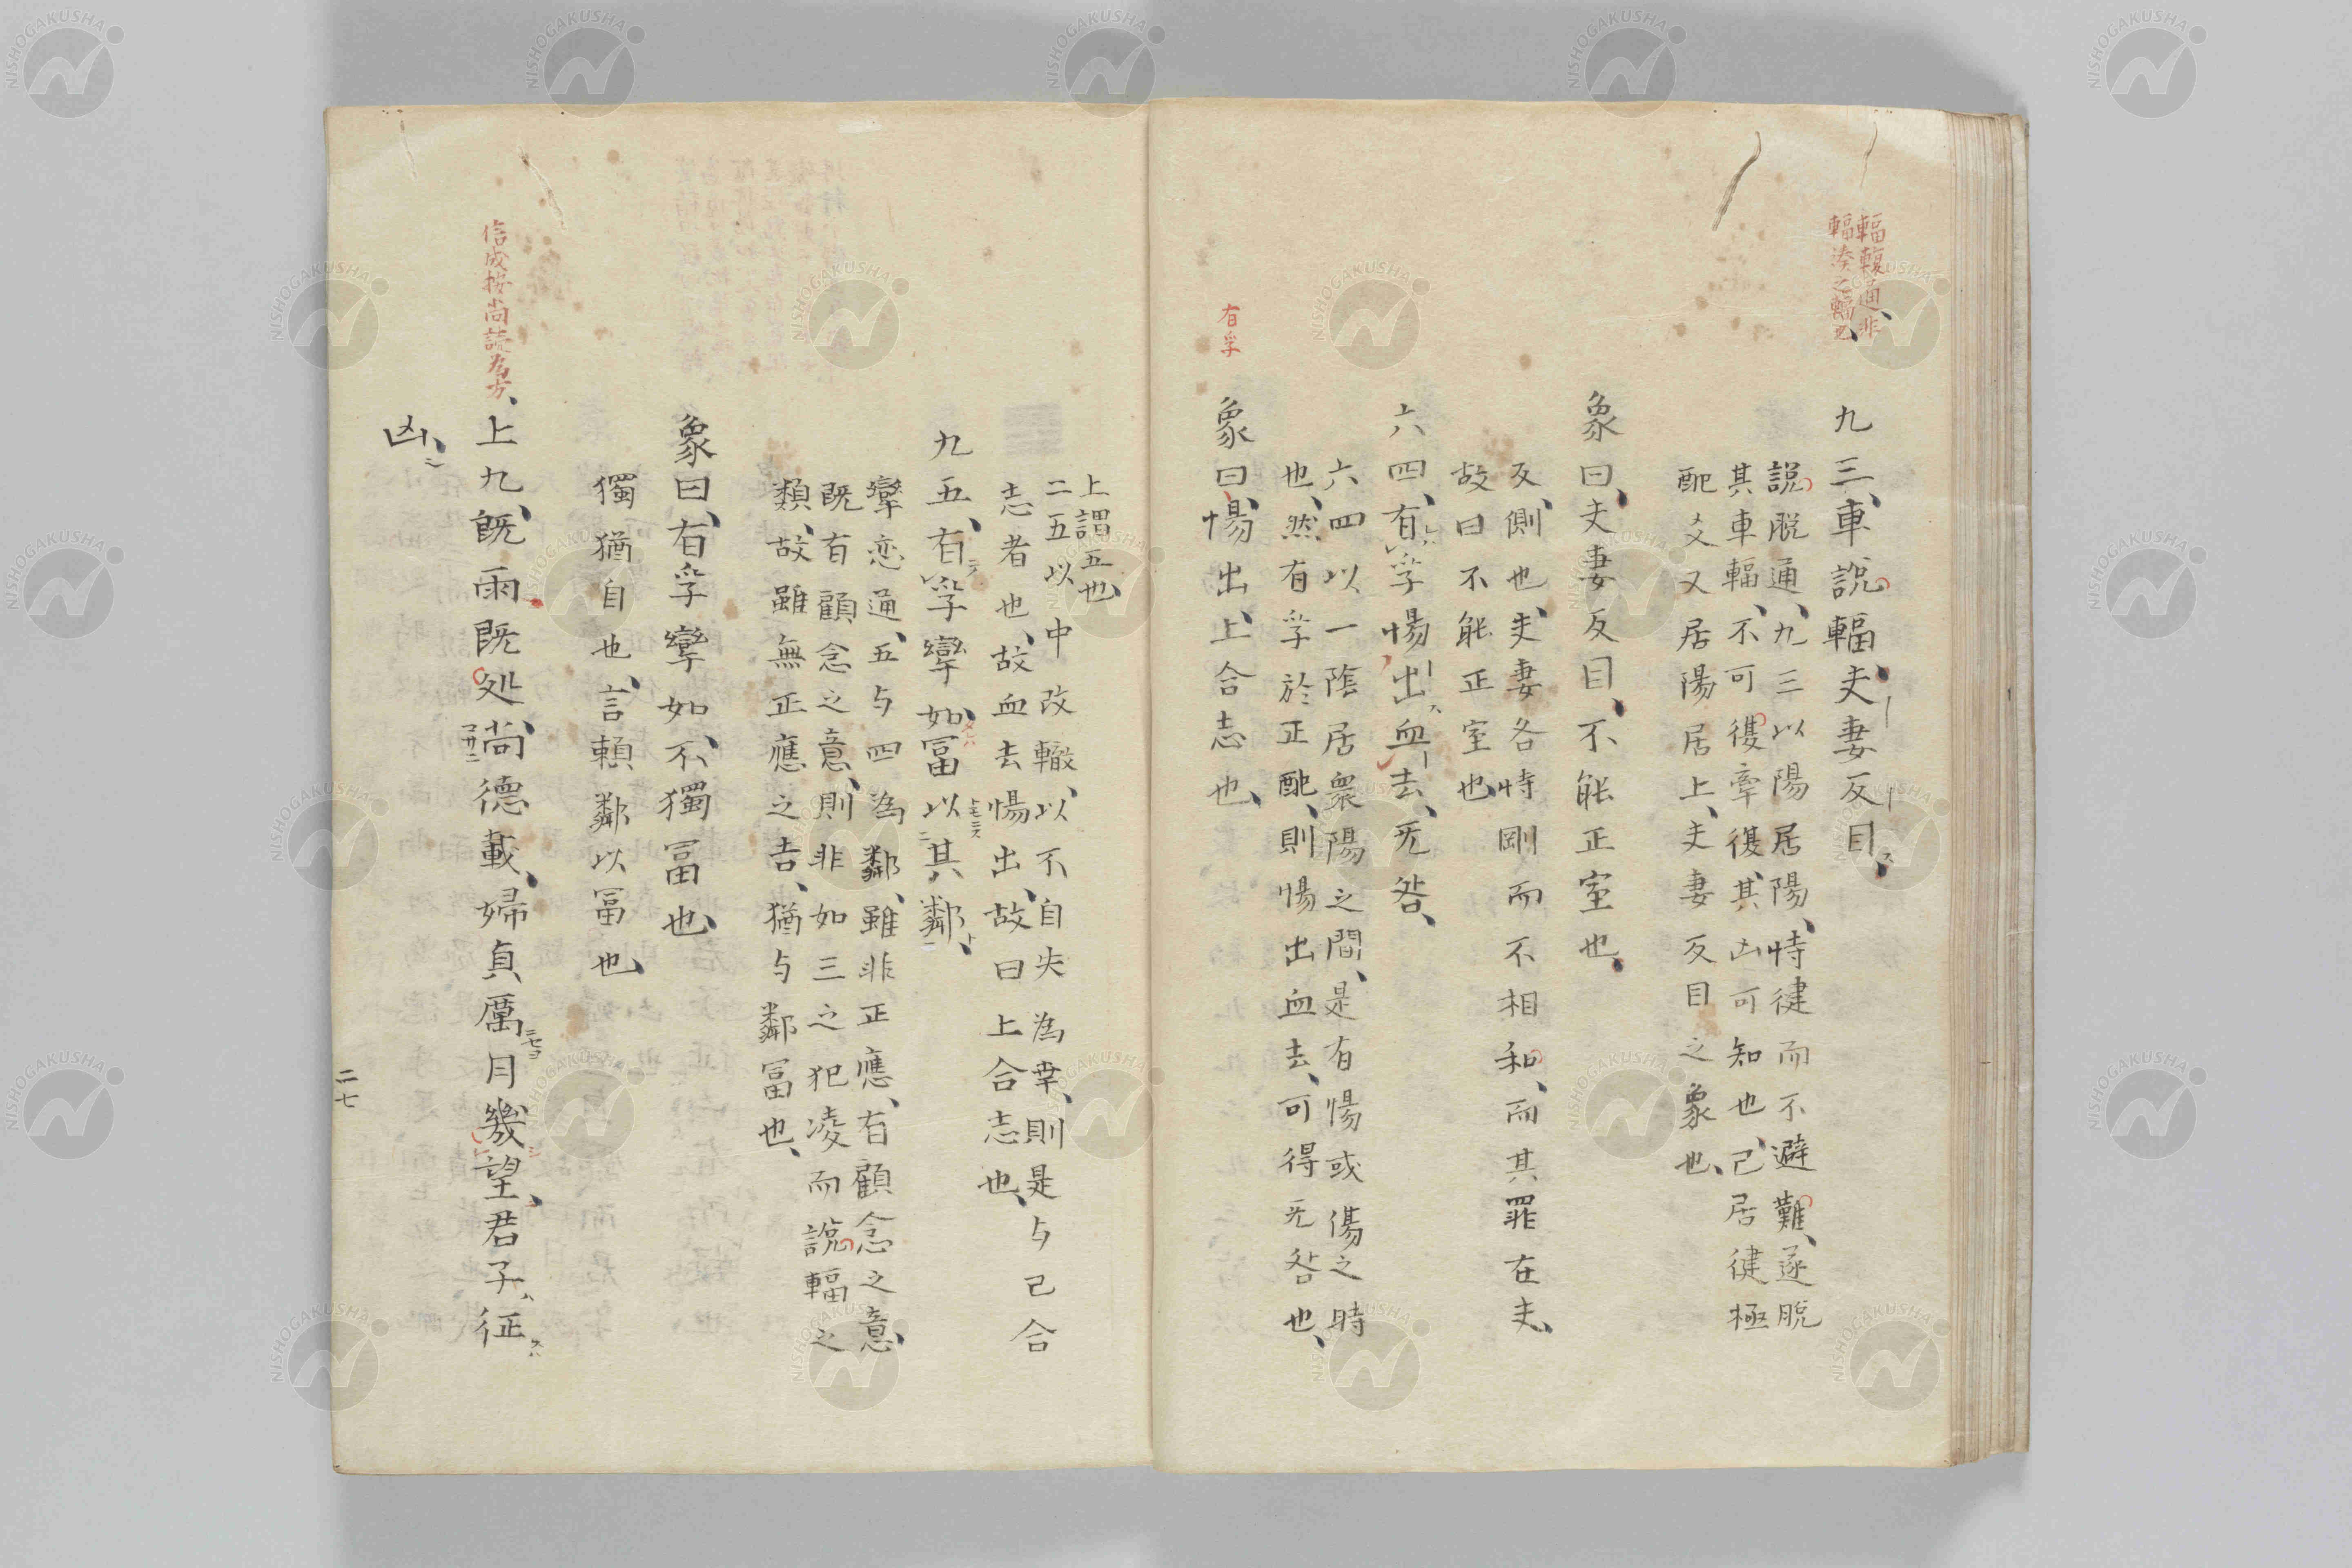 輻輹通、非
輻湊之輻也、
九三、車説輻、夫妻反目、
説脱通、九三以陽居陽、恃健而不避難、遂脱
其車輻、不可復牽復、其凶可知也、己居健極
配爻又居陽居上、夫妻反目之象也、
象曰、夫妻反目、不能正室也、
反、側也、夫妻各恃剛而不相和、而其罪在夫、
故曰不能正室也、
六四、有孚惕出血去、无咎、
六四以一陰居衆陽之間、是有惕或傷之時
也、然有孚於正配、則惕出血去、可得无咎也、
有孚
象曰、惕出、上合志也、
上謂五也、
二五以中改轍、以不自失為幸、則是与己合
志者也、故血去惕出、故曰上合志也、
九五、有孚攣如、冨以其鄰、
攣恋通、五与四為鄰、雖非正應、有顧念之意、
既有顧念之意、則非如三之犯凌而說輻之
類、故雖無正應之吉、猶与鄰冨也、
象曰、有孚攣如、不獨冨也、
獨猶自也、言頼鄰以冨也、
信成按尚読為方、
上九、既雨既処、尚德載、婦貞厲、月幾望、君子征
凶、
二七